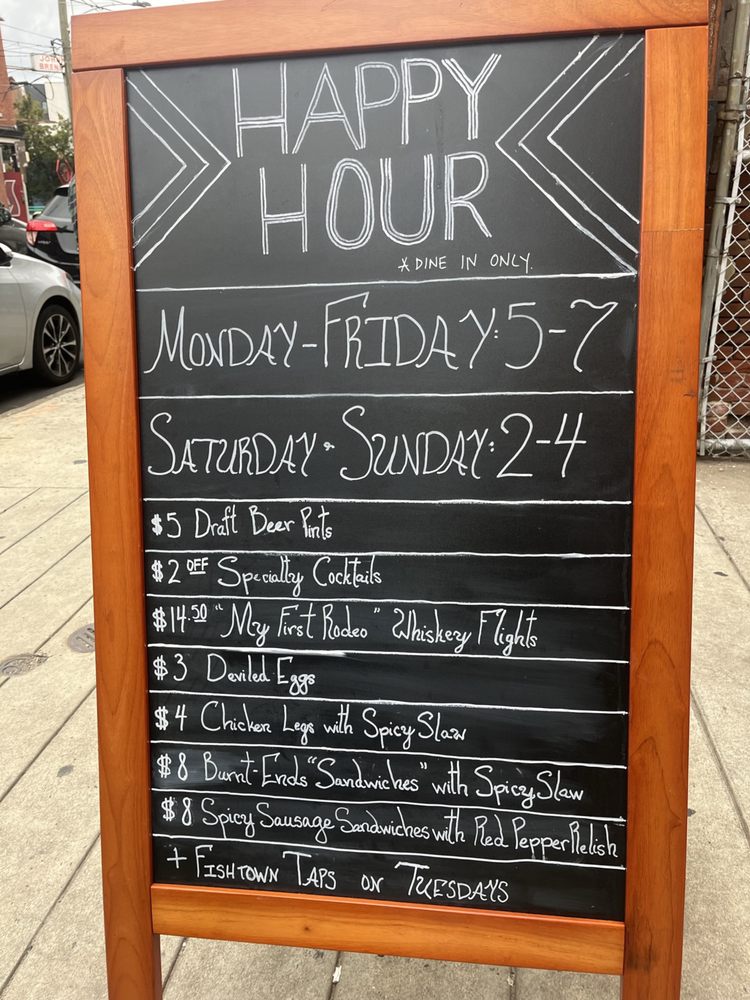 HAPPY
HOUR
* DINE IN ONLY.
MONDAY-FRIDAY: 5-7
SATURDAY - SUNDAY: 2-4
$5 Draft Beer Pints
$2 OFF Specialty Cocktails
$14.50 "My First Rodeo" Whiskey Flights
$3 Deviled Eggs
$4 Chicken Legs with Spicy Slaw
$8 Burnt-Ends "Sandwiches" with Spicy Slaw
$8 Spicy Sausage Sandwiches with Red Pepper Relish
+ FISHTOWN TAPS ON TUESDAYS